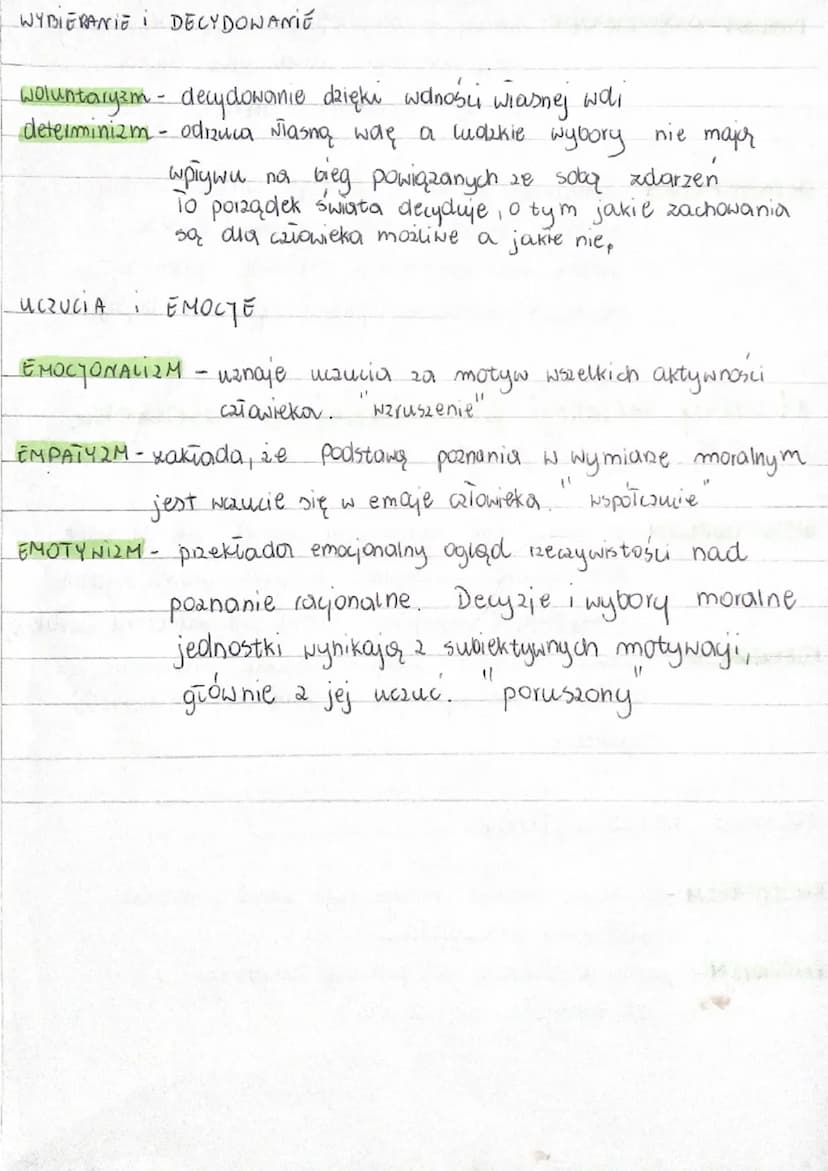 WYBIERANIE i DECYDOWANIE
woluntaryzm - decydowanie dzięki wolności własnej woli
determinizm - odrzuca własną wolę a ludzkie wybory nie mają
wpływu na bieg powiązanych ze sobą zdarzeń
To porządek świata decyduje, o tym jakie zachowania
są dla człowieka możliwe a jakie nie,
UCZUCIA i EMOCJE
EMOCJONALIZM - uznaje uczucia za motyw wszelkich aktywności
człowieka. "wzruszenie"
EMPATYZM - zakłada, że podstawą poznania w wymiarze moralnym
jest wczucie się w emocje człowieka. "współczucie"
EMOTYWIZM - przekłada emocjonalny ogląd rzeczywistości nad
poznanie racjonalne. Decyzje i wybory moralne
jednostki wynikają z subiektywnych motywacji,
głównie z jej uczuć. "poruszony"